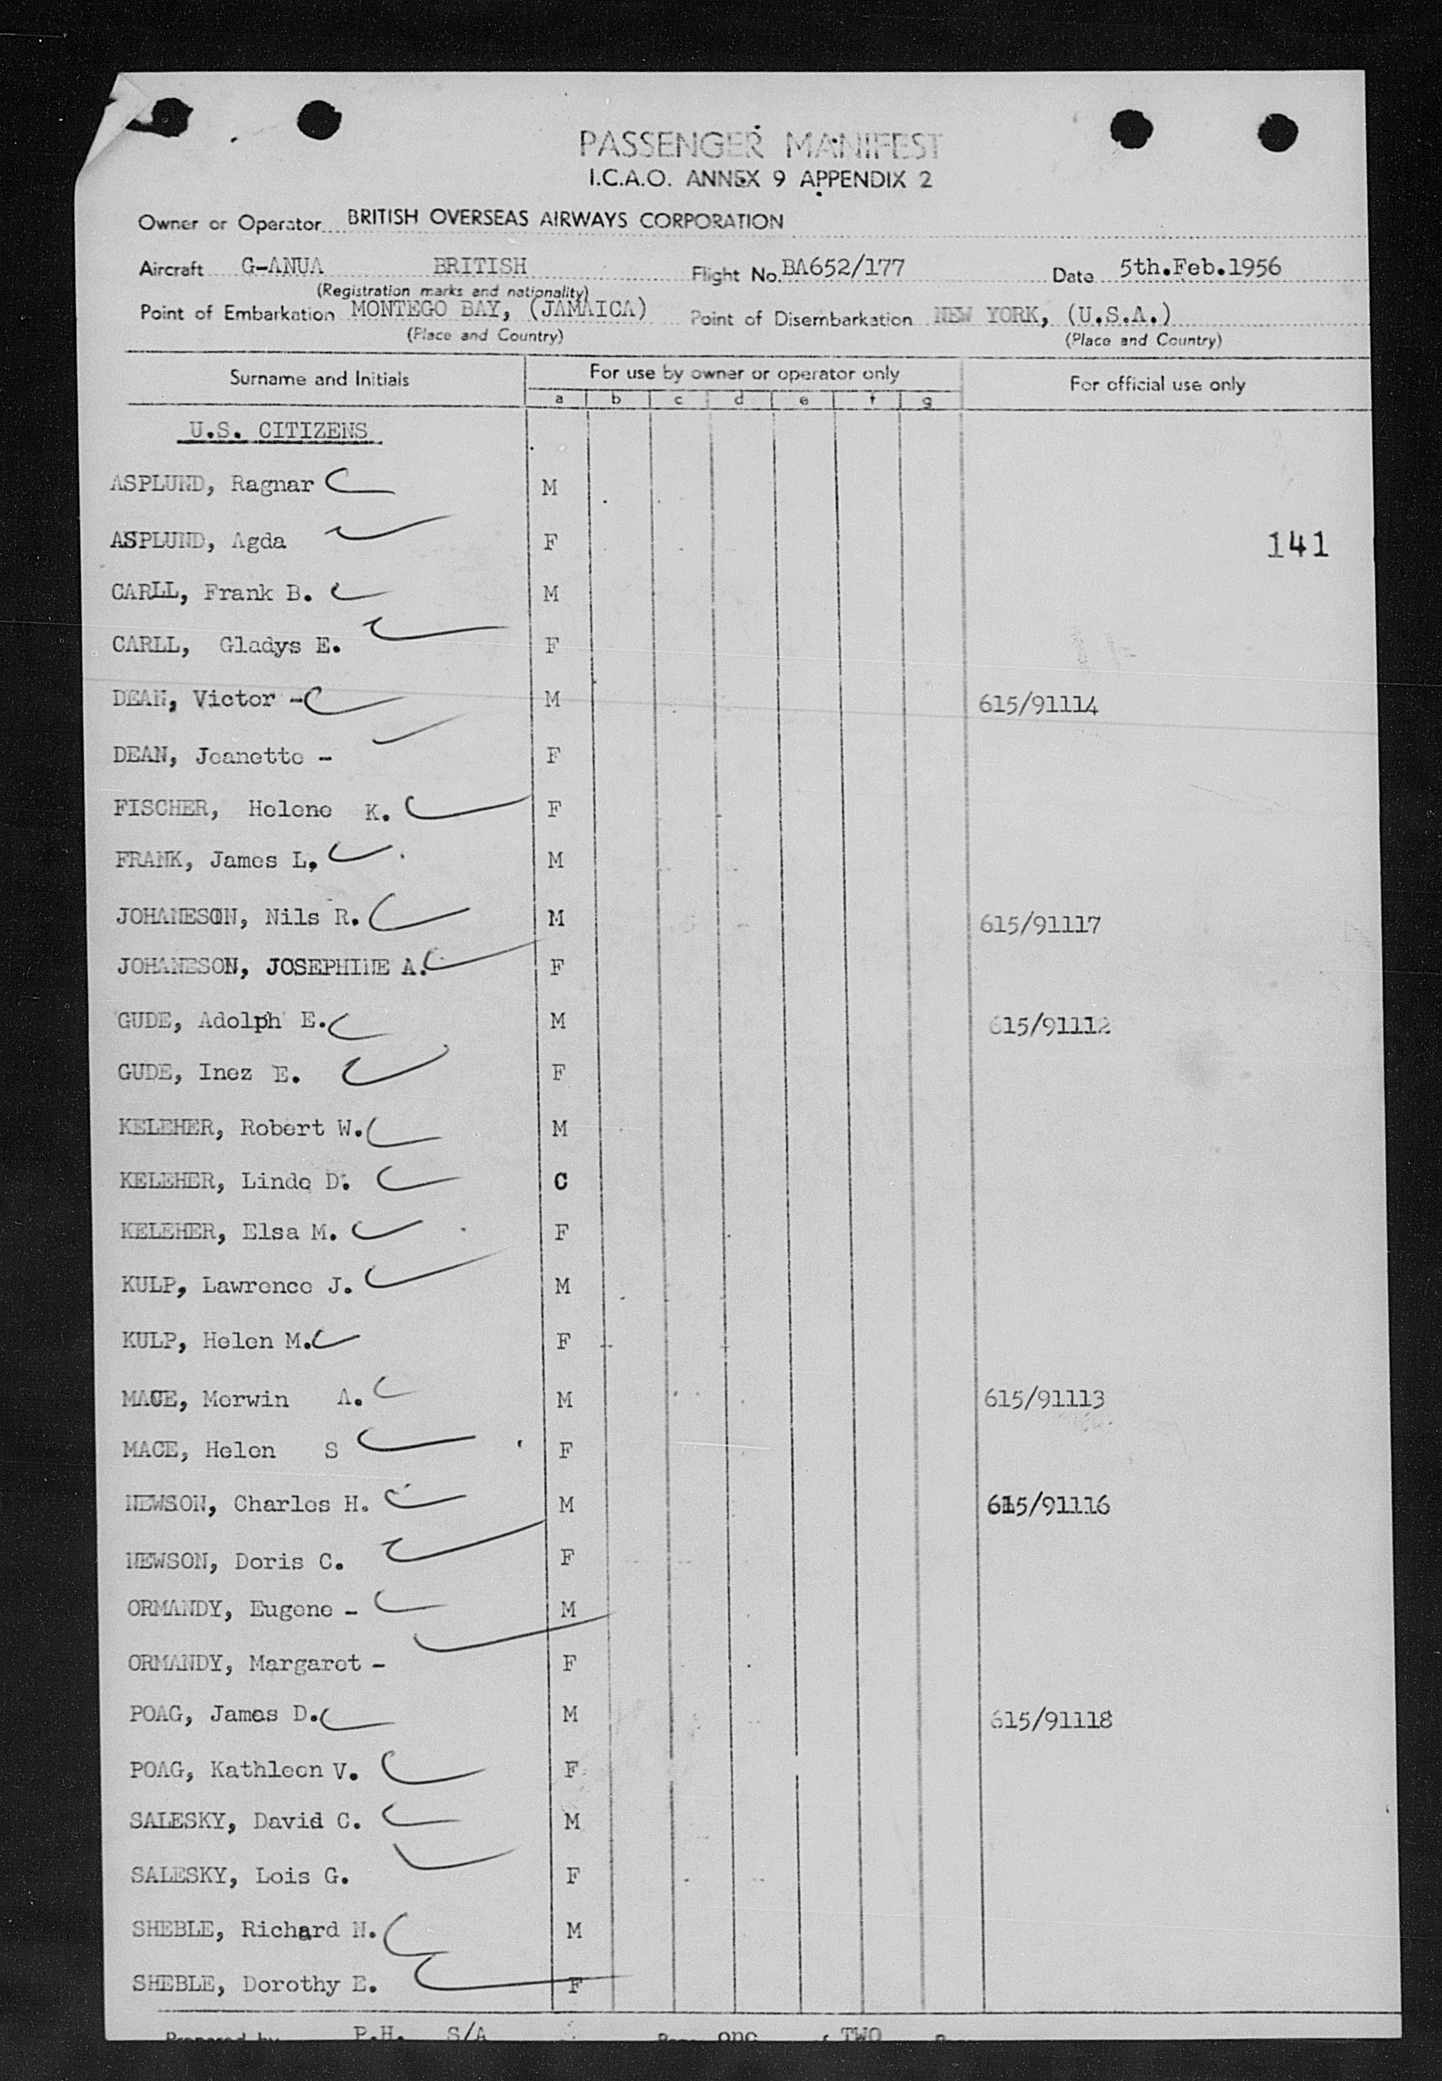 PASSENGER MANIFEST
I.C.A.O. ANNEX 9 APPENDIX 2
Owner or Operator BRITISH OVERSEAS AIRWAYS CORPORATION
Aircraft G-ANUA BRITISH Flight No. BA652/177 Date 5th.Feb.1956
(Registration marks and nationality)
Point of Embarkation MONTEGO BAY, (JAMAICA) Point of Disembarkation NEW YORK, (U.S.A.)
(Place and Country) (Place and Country)
Surname and Initials For use by owner or operator only For official use only
a b c d e f g
U.S. CITIZENS
ASPLUND, Ragnar M
ASPLUND, Agda F 141
CARLL, Frank B. M
CARLL, Gladys E. F
DEAN, Victor - M 615/91114
DEAN, Jeanette - F
FISCHER, Helene K. F
FRANK, James L. M
JOHANESON, Nils R. M 615/91117
JOHANESON, JOSEPHINE A. F
GUDE, Adolph E. M 615/91112
GUDE, Inez E. F
KELEHER, Robert W. M
KELEHER, Linde D. C
KELEHER, Elsa M. F
KULP, Lawrence J. M
KULP, Helen M. F
MACE, Merwin A. M 615/91113
MACE, Helen S F
NEWSON, Charles H. M 615/91116
NEWSON, Doris C. F
ORMANDY, Eugene - M
ORMANDY, Margaret - F
POAG, James D. M 615/91118
POAG, Kathleen V. F
SALESKY, David C. M
SALESKY, Lois G. F
SHEBLE, Richard N. M
SHEBLE, Dorothy E. F
Prepared by P.H. S/A one TWO